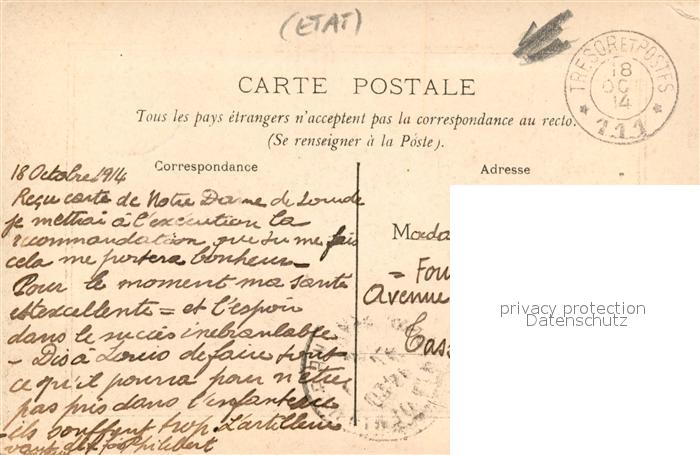 (ETAT)
TRESOR ET POSTES
18
OC
14
* 111 *
CARTE POSTALE
Tous les pays étrangers n'acceptent pas la correspondance au recto.
(Se renseigner à la Poste).
Correspondance
Adresse
18 Octobre 1914
Reçu carte de Notre Dame de Lourde
je mettrai à l'exécution la
recommandation que tu me fais
cela me portera bonheur -
Pour le moment ma santé
est excellente = et l'espoir
dans le succès inébranlable
- Dis à Louis de faire tout
ce qu'il pourra pour n'être
pas pris dans l'infanterie
ils souffrent trop. L'artillerie
vaut dix fois Philibert
Mada
= Fou
Avenue
Cass
privacy protection
Datenschutz